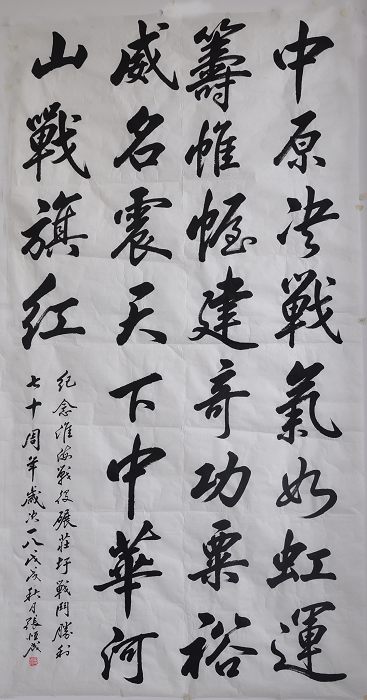 中原决戰氣如虹運
籌帷幄建奇功粟裕
威名震天下中華河
山戰旗紅
紀念淮海戰役碾莊圩戰鬥勝利
七十周年歲次一八戊戌秋月張